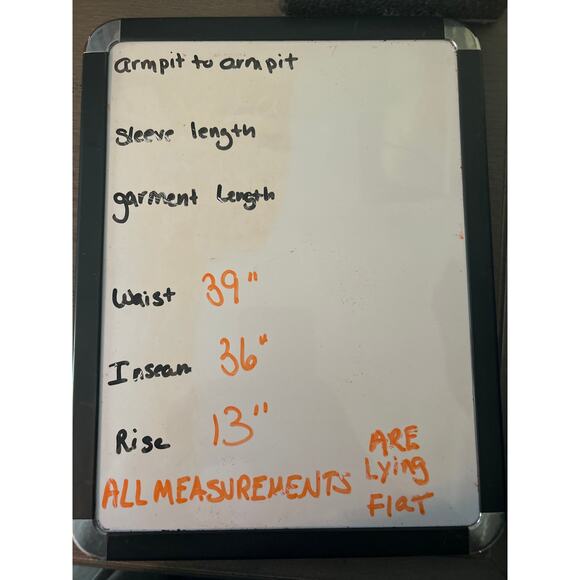 armpit to armpit
sleeve length
garment Length
Waist 39"
Inseam 36"
Rise 13"
ALL MEASUREMENTS ARE Lying Flat